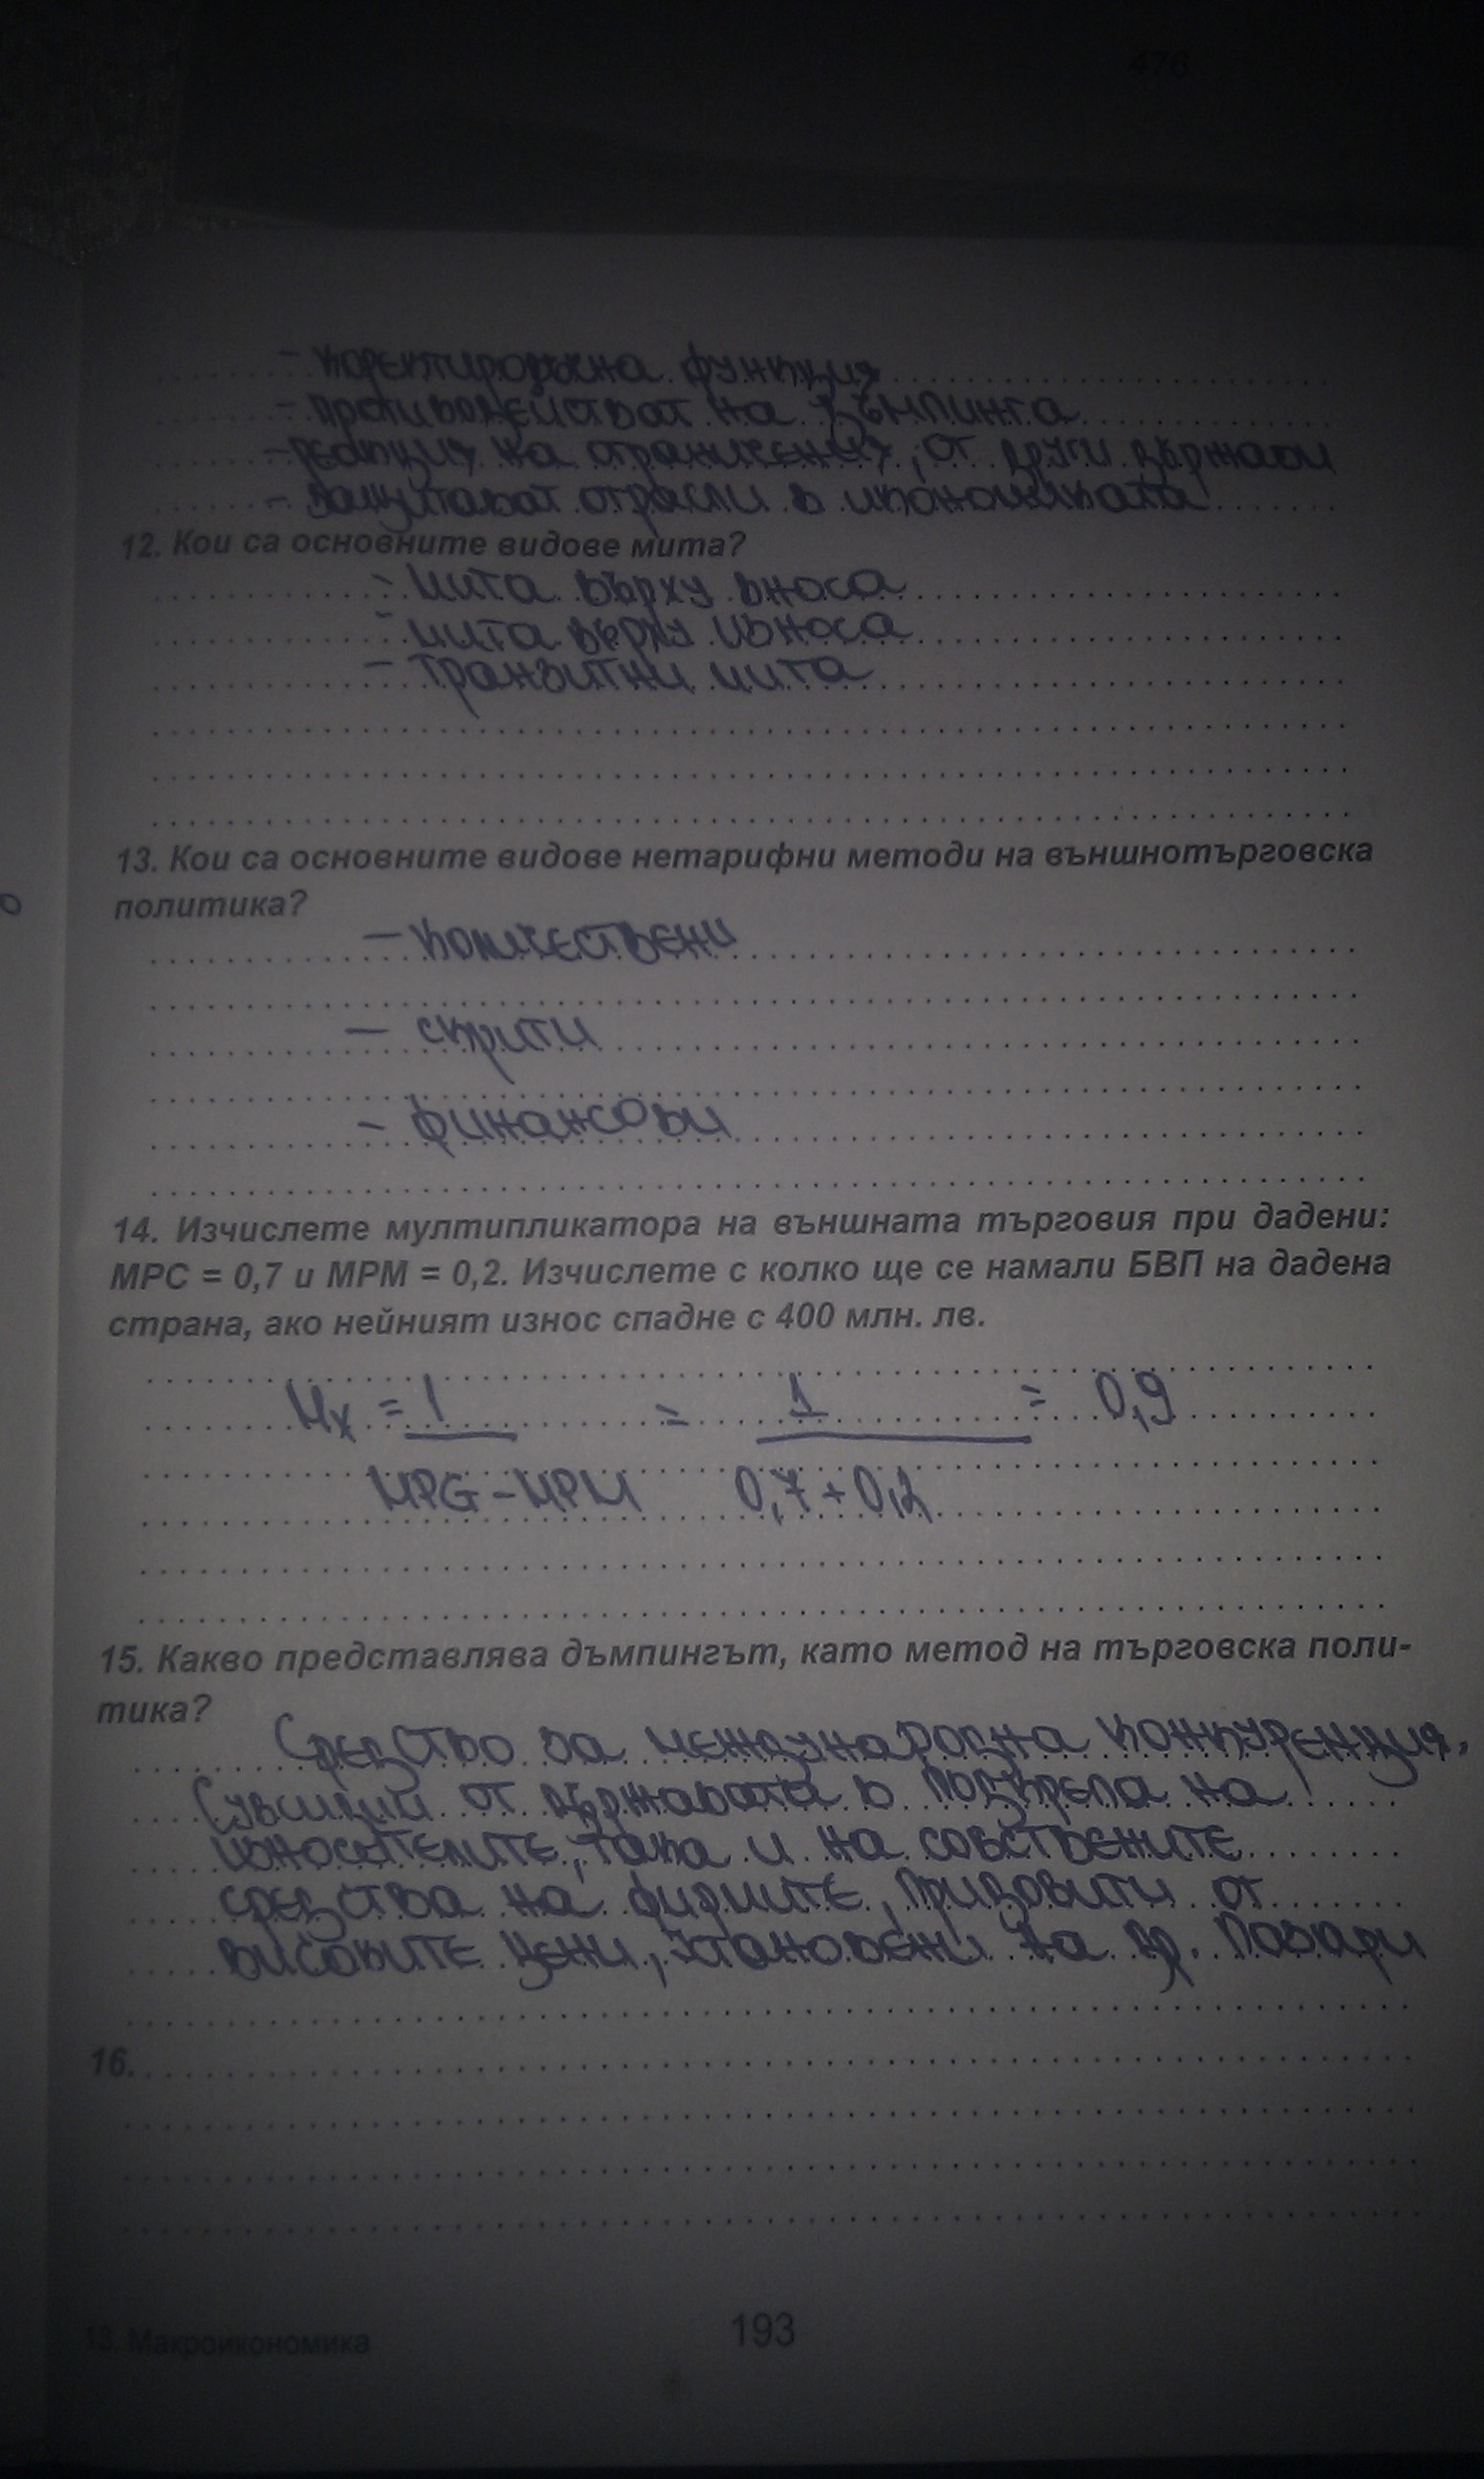 476
- коректировъчна функция
- противодействат на дъмпинга
- реакция на ограничения, от други държави
- защитават отрасли в икономиката
12. Кои са основните видове мита?
- мита върху вноса
- мита върху износа
- транзитни мита
13. Кои са основните видове нетарифни методи на външнотърговска
политика?
- количествени
- скрити
- финансови
14. Изчислете мултипликатора на външната търговия при дадени:
MPC = 0,7 и MPM = 0,2. Изчислете с колко ще се намали БВП на дадена
страна, ако нейният износ спадне с 400 млн. лв.
Mx = 1 = 1 = 0,9
MPG - MPM 0,7 + 0,2
15. Какво представлява дъмпингът, като метод на търговска поли-
тика?
Средство за международна конкуренция,
от държавата в подкрепа на
износителите, така и на собствените
средства на фирмите, придобити от
високите цени, установени на др. пазари
16.
193
13. Макроикономика